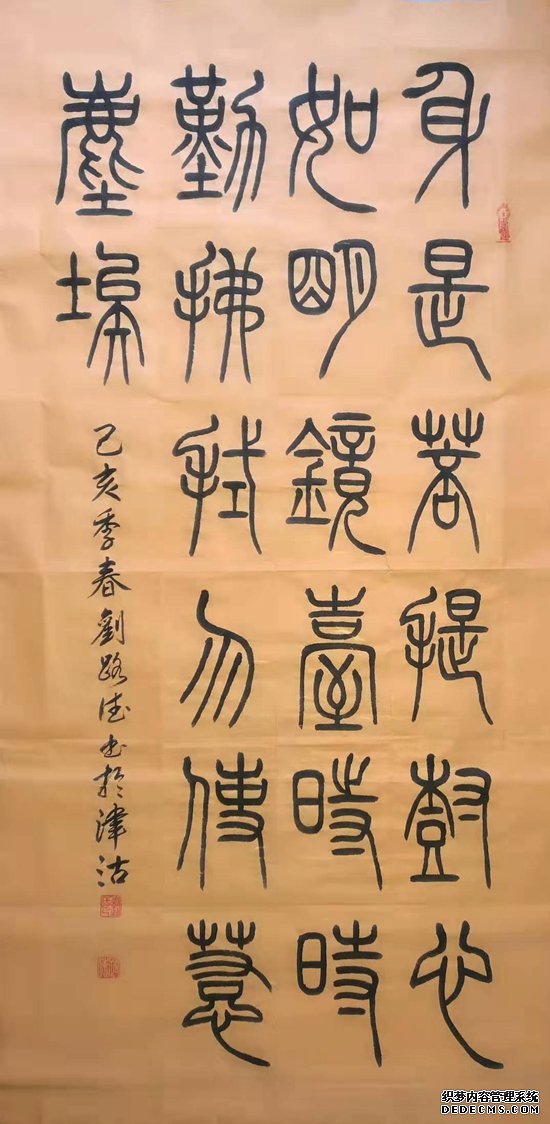 身是菩提樹心
如明鏡臺時時
勤拂拭勿使惹
塵埃
己亥季春劉路德书於津沽
织梦内容管理系统
DEDECMS.COM